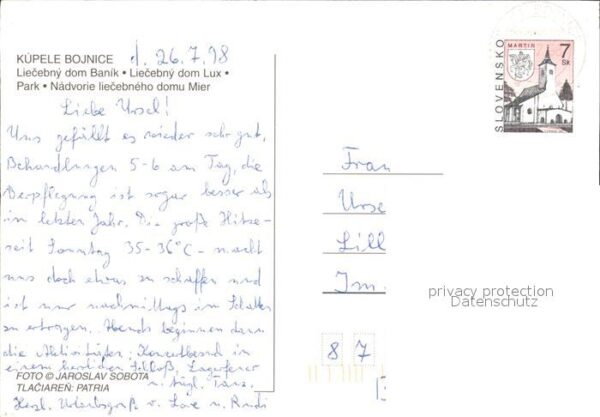 KÚPELE BOJNICE
d. 26.7.98
Liečebný dom Baník • Liečebný dom Lux •
Park • Nádvorie liečebného domu Mier
Liebe Ursel!
Uns gefällt es wieder sehr gut,
Behandlungen 5-6 am Tag, die
Verpflegung ist sogar besser als
im letzten Jahr. Die große Hitze -
seit Sonntag 35-36°C - macht
uns doch etwas zu schaffen und
ist nur nachmittags im Schatten
zu ertragen. Abends beginnen dann
die Aktivitäten: Konzertbesuch in
einem herrlichen Schloß, Lagerfeuer
u. tägl. Tanz.
FOTO © JAROSLAV SOBOTA
TLAČIAREŇ: PATRIA
Herzl. Urlaubsgruß v. u. Rudi
SLOVENSKO
MARTIN
7
Sk
Frau
Urse
Lill
Im
privacy protection
Datenschutz
8 7